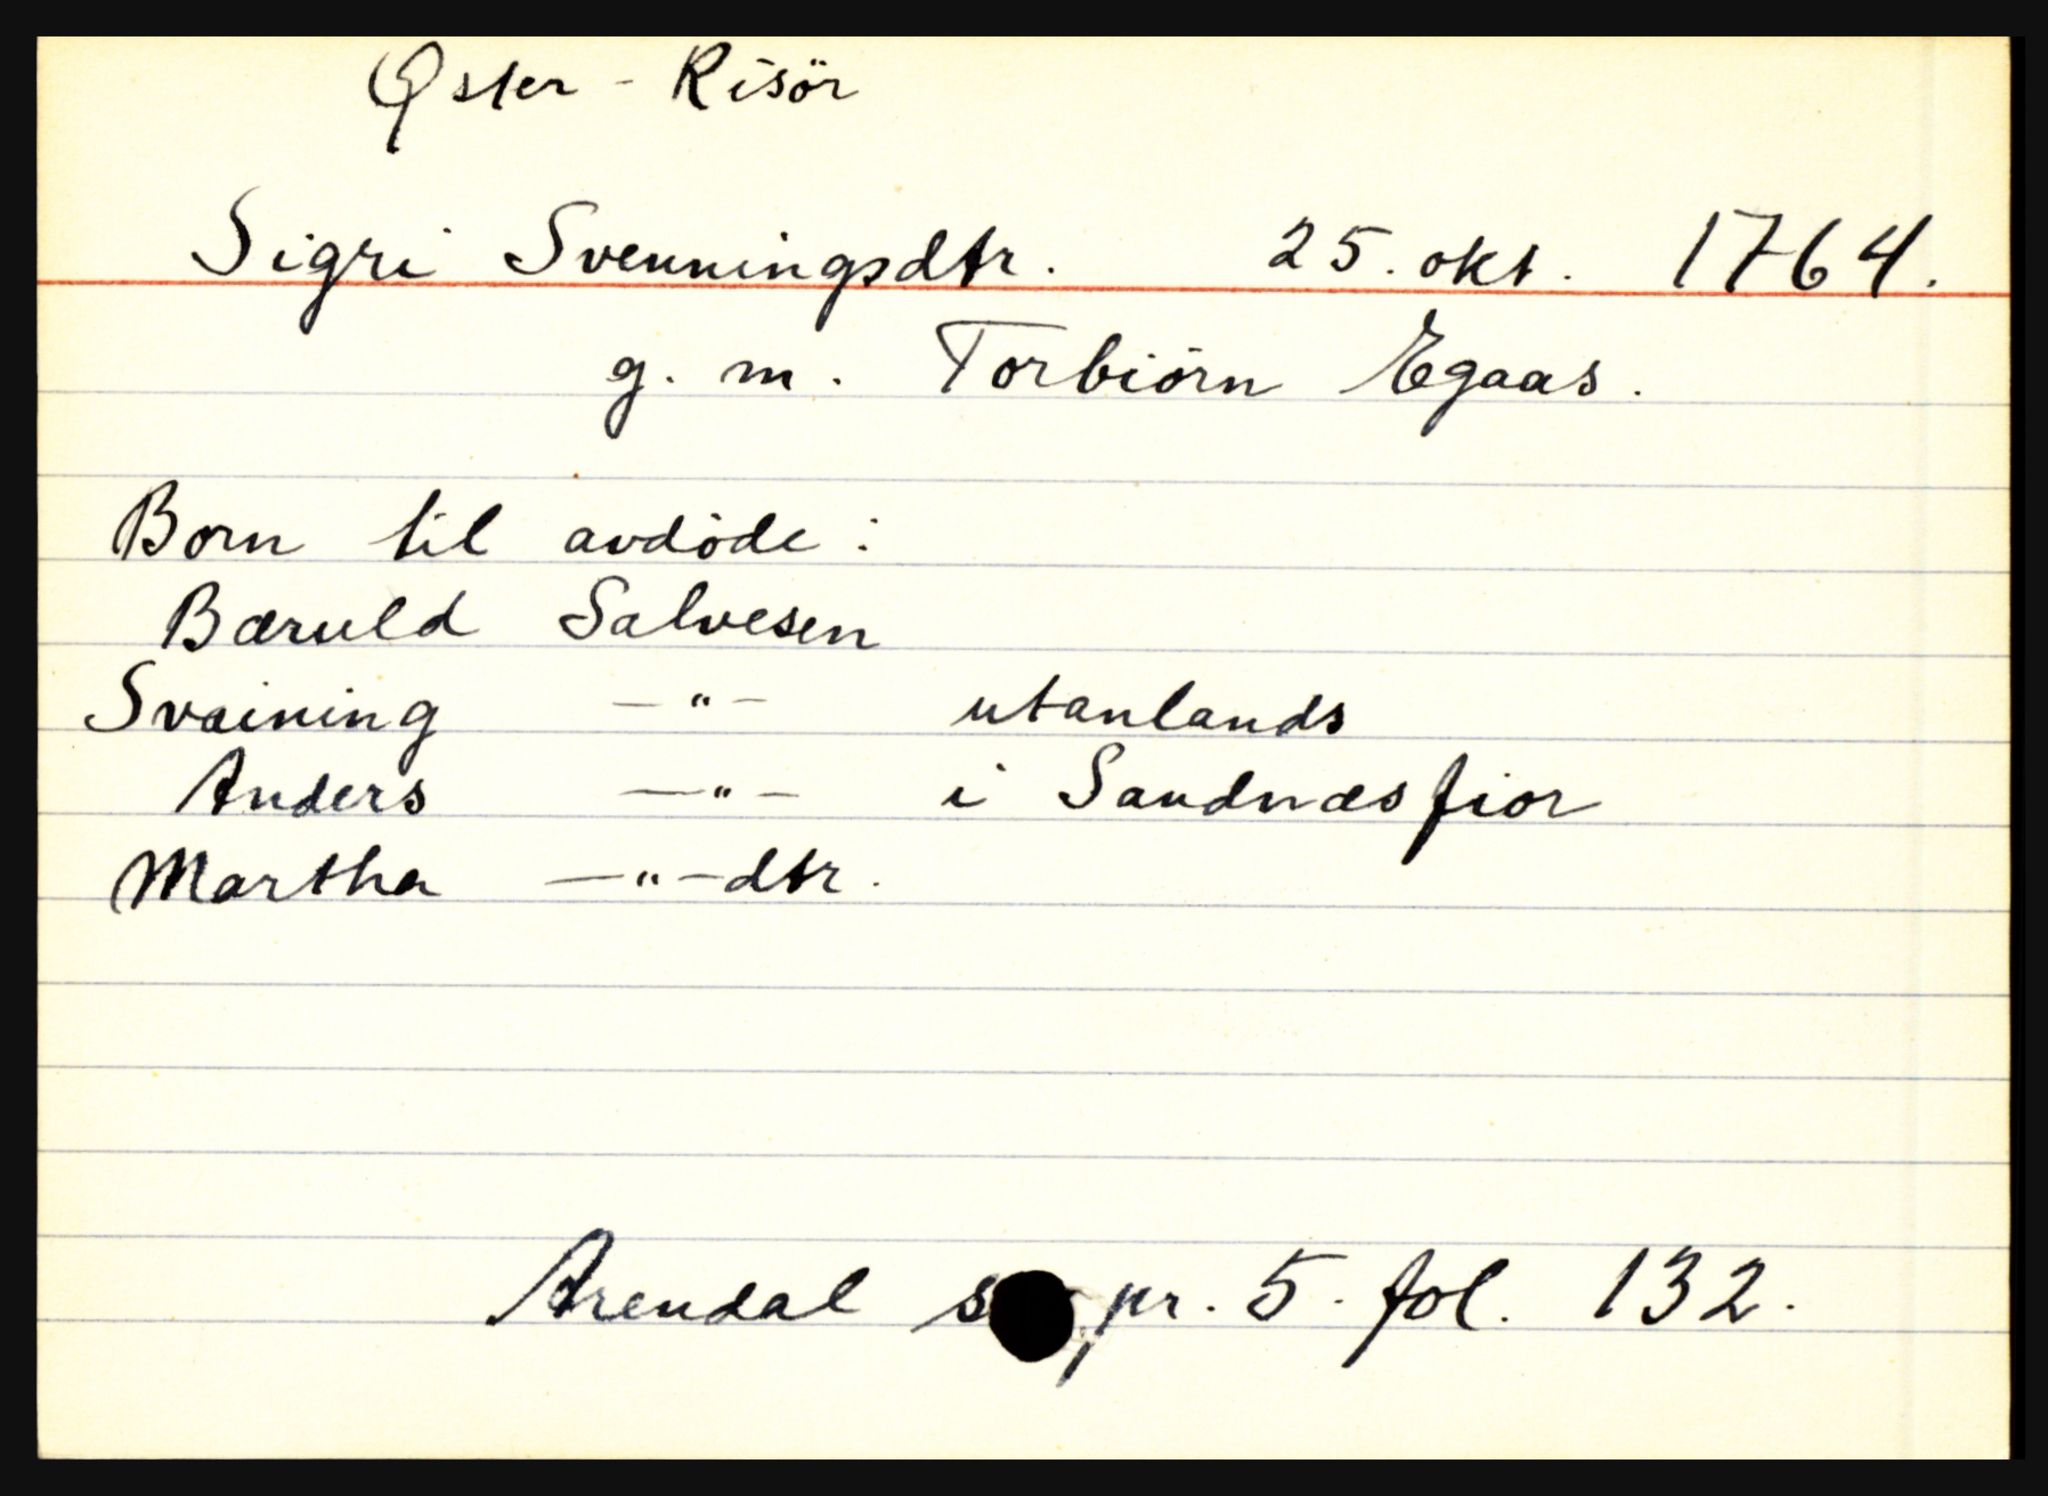 Øster - Risör
Sigri Svenningsdtr. 25. okt. 1764.
g. m. Torbiörn Egaas.
Born til avdöde:
Bæruld Salvesen
Svaining —"— utanlands
Anders —"— i Sandnæsfior
Martha —"—dtr.
Arendal pr. 5. fol. 132.